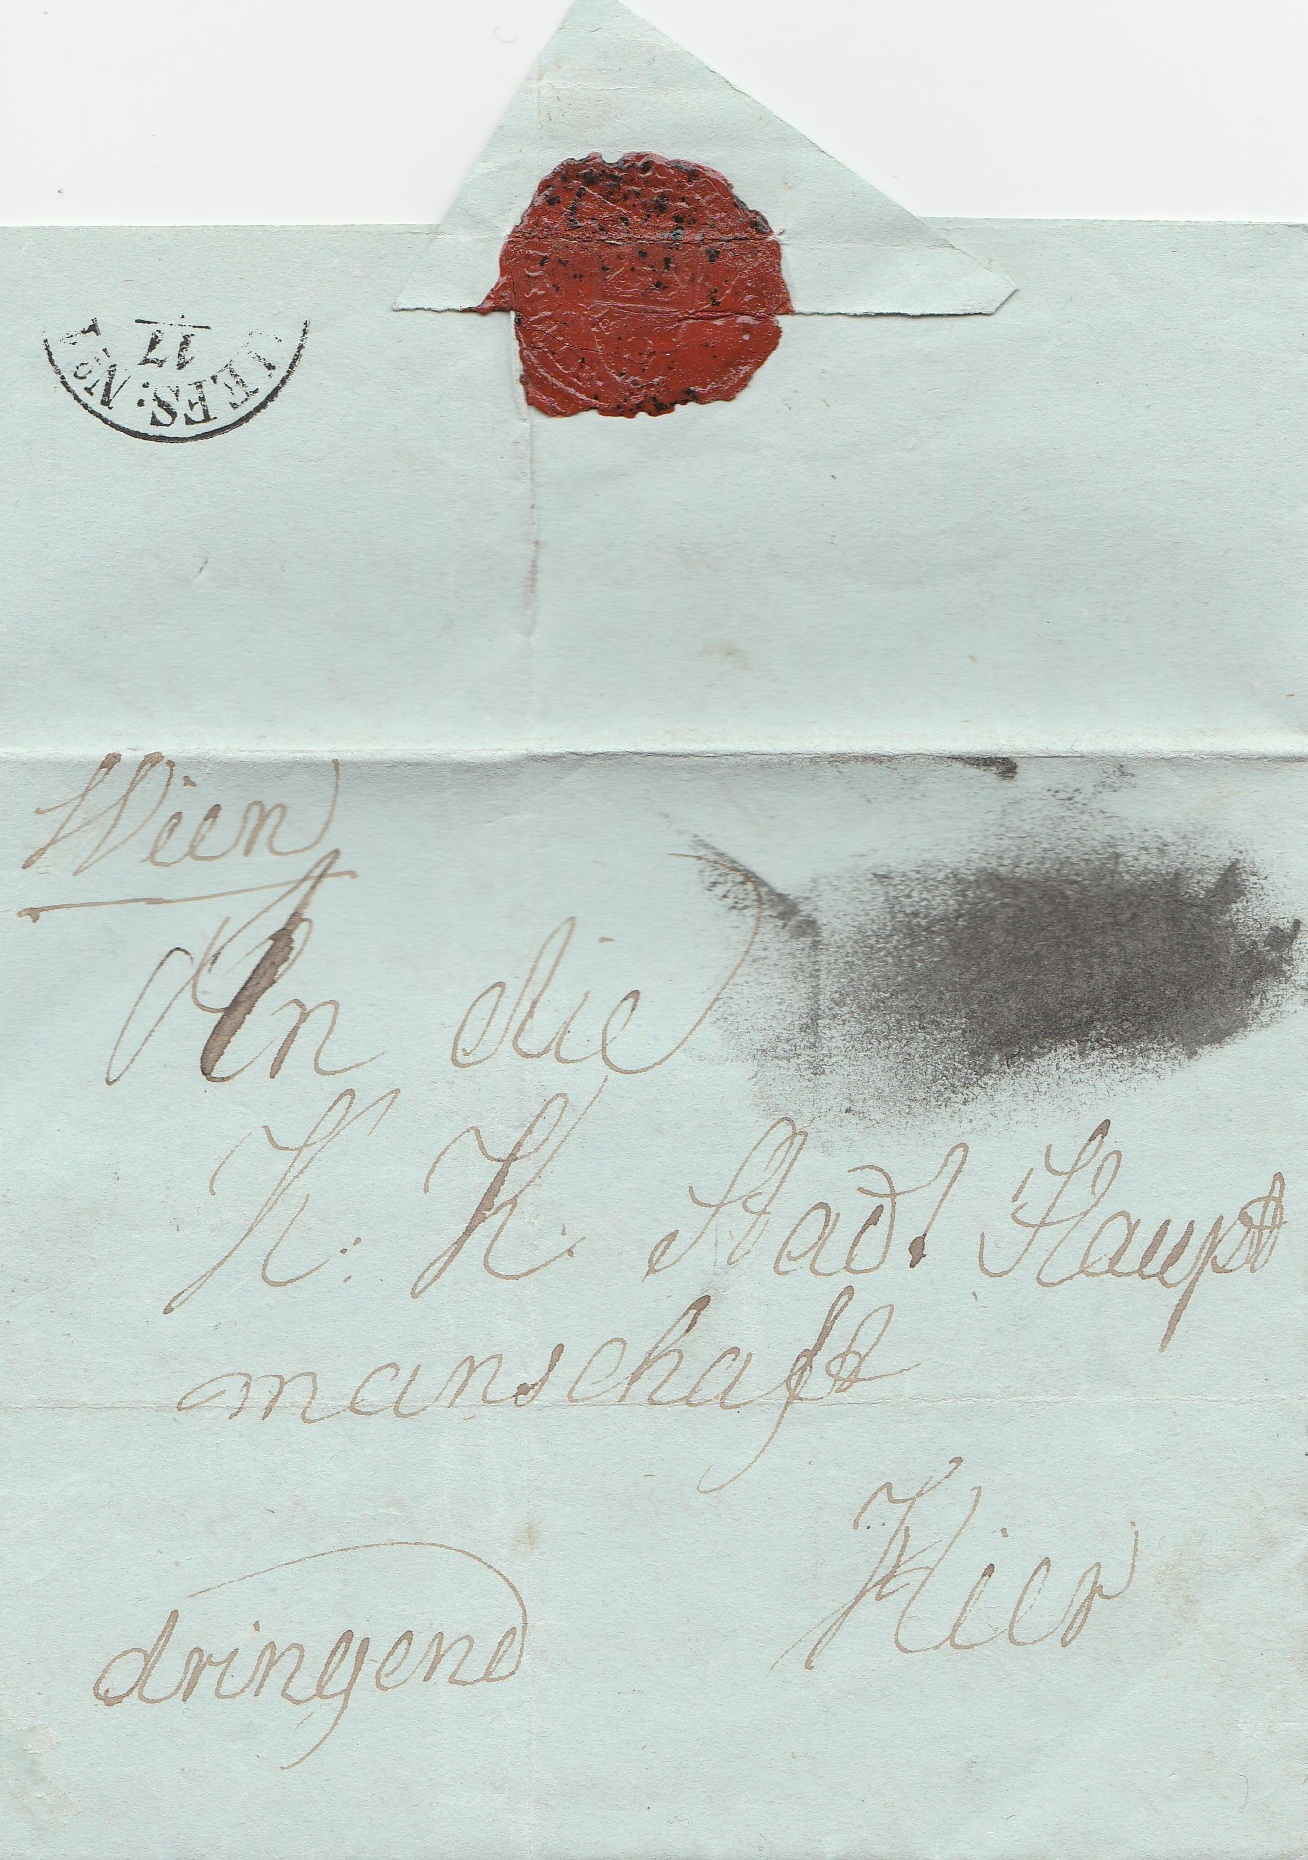 17
Nº 1
Wien
An die
K. K. Stadt Haupt
manschaft
Hier
dringend